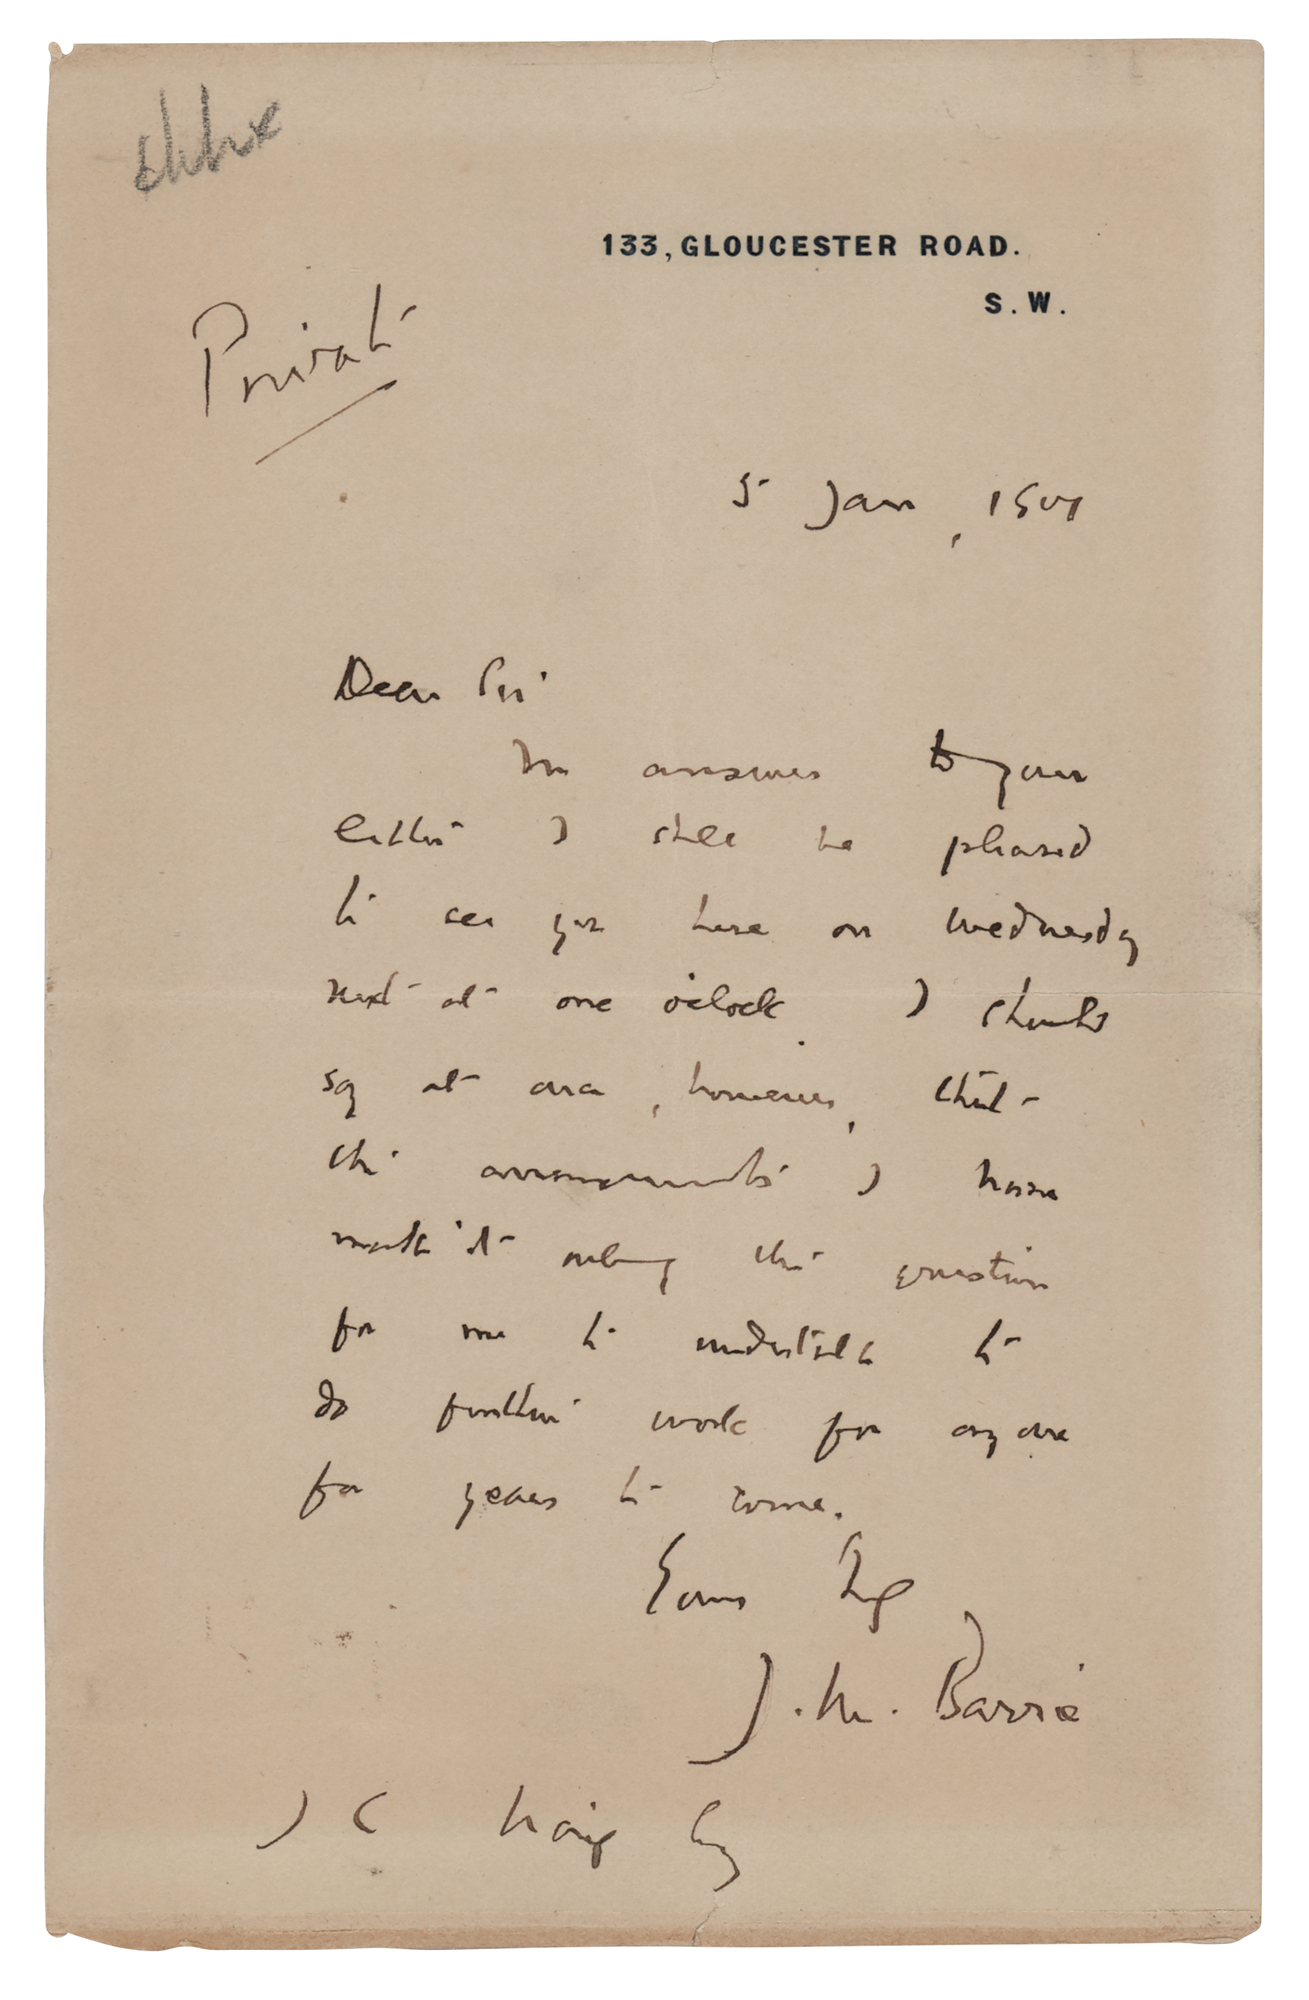 133, GLOUCESTER ROAD.
S. W.
Private
5 Jan, 1901
Dear Sir
In answer to your
letter I shall be pleased
to see you here on Wednesday
next at one o'clock. I should
say at once, however, that
the arrangements I have
make it out of the question
for me to undertake to
do further work for anyone
for years to come.
Yours truly
J. M. Barrie
J C Haig Esq